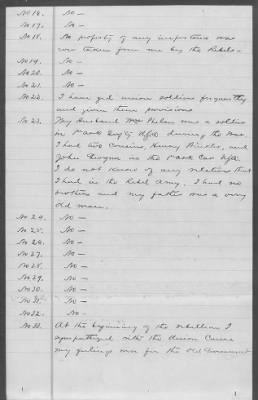 No 16. No —
No 17. No —
No 18. No property of any importance was
ever taken from me by the Rebels.
No 19. No —
No 20. No —
No 21. No —
No 22. I have fed union soldiers frequently
and given them provisions
No 23. My Husband Wm Phelan was a soldier
in 1st Ark during the War.
I had two Cousins, Henry and
John in the 1st Ark Cav
I do not know of any relations that
I had in the Rebel Army. I had no
brothers and my father was a very
Old man.
No 24. No —
No 25. No —
No 26. No —
No 27. No —
No 28. No —
No 29. No —
No 30. No —
No 31. No —
No 32. No —
No 33. At the beginning of the rebellion I
sympathized with the Union Cause
my feelings was for the Old Government